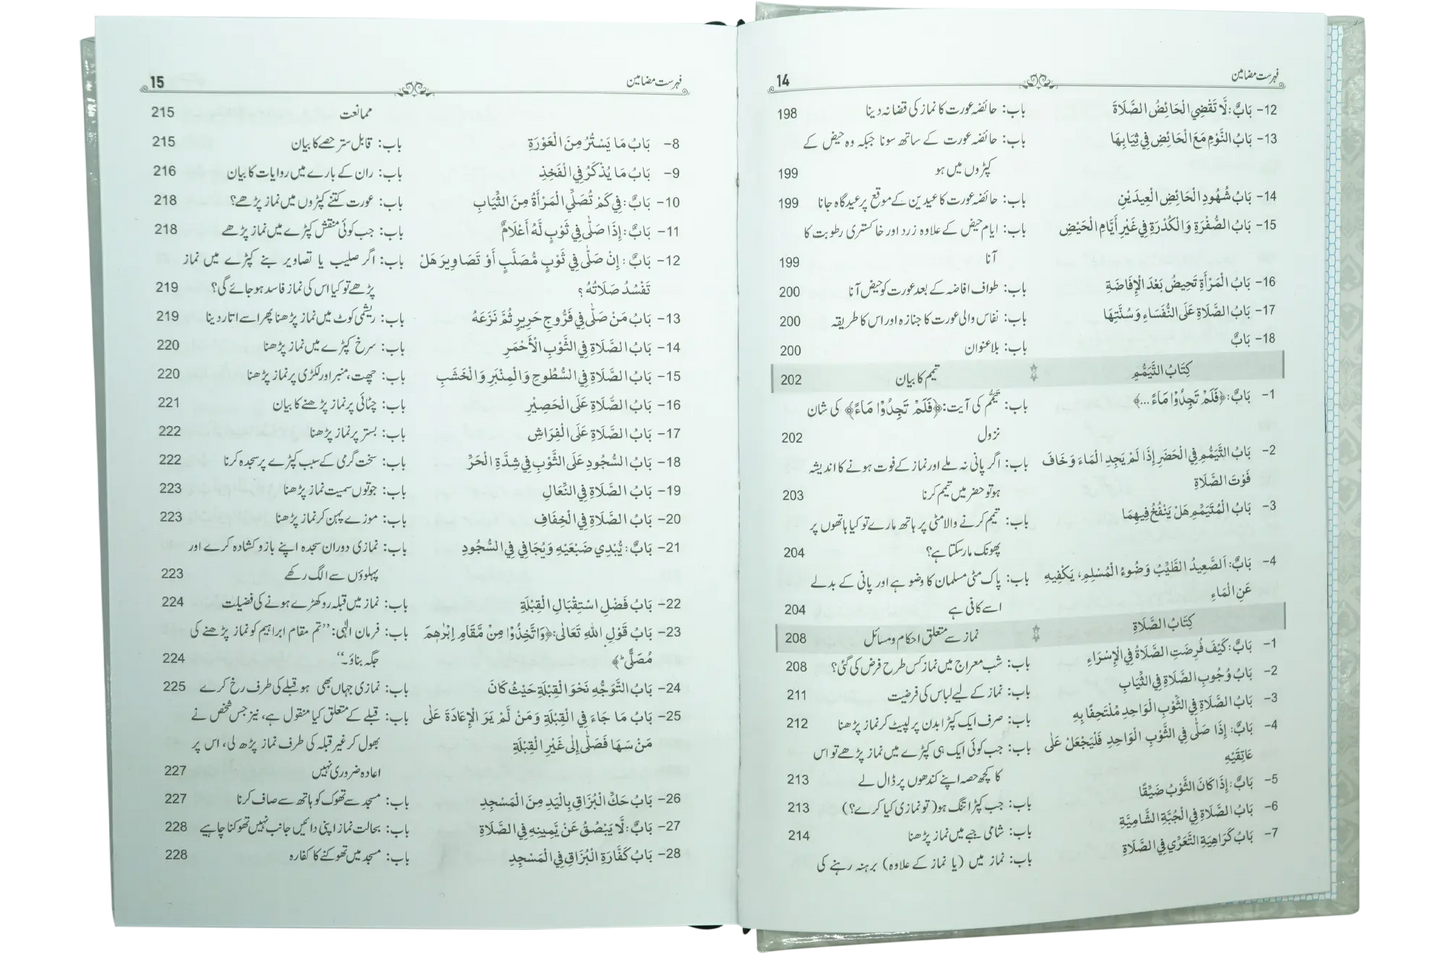 14 فہرست مضامین
12- بَابٌ: لَا تَقْضِي الْحَائِضُ الصَّلَاةَ باب: حائضہ عورت کا نماز کی قضا نہ دینا 198
13- بَابُ النَّوْمِ مَعَ الْحَائِضِ فِي ثِيَابِهَا باب: حائضہ عورت کے ساتھ سونا جبکہ وہ حیض کے
کپڑوں میں ہو 199
14- بَابُ شُهُودِ الْحَائِضِ الْعِيدَيْنِ باب: حائضہ عورت کا عیدین کے موقع پر عیدگاہ جانا 199
15- بَابُ الصُّفْرَةِ وَالْكُدْرَةِ فِي غَيْرِ أَيَّامِ الْحَيْضِ باب: ایام حیض کے علاوہ زرد اور خاکستری رطوبت کا
آنا 199
16- بَابُ الْمَرْأَةِ تَحِيضُ بَعْدَ الْإِفَاضَةِ باب: طواف افاضہ کے بعد عورت کو حیض آنا 200
17- بَابُ الصَّلَاةِ عَلَى النُّفَسَاءِ وَسُنَّتِهَا باب: نفاس والی عورت کا جنازہ اور اس کا طریقہ 200
18- بَابٌ باب: بلاعنوان 200
كِتَابُ التَّيَمُّمِ تیمم کا بیان 202
1- بَابٌ: ﴿فَلَمْ تَجِدُوْا مَآءً ...﴾ باب: تیمُّم کی آیت: ﴿فَلَمْ تَجِدُوْا مَآءً﴾ کی شان
نزول 202
2- بَابُ التَّيَمُّمِ فِي الْحَضَرِ إِذَا لَمْ يَجِدِ الْمَاءَ وَخَافَ باب: اگر پانی نہ ملے اور نماز کے فوت ہونے کا اندیشہ
فَوْتَ الصَّلَاةِ ہو تو حضر میں تیمم کرنا 203
3- بَابُ الْمُتَيَمِّمِ هَلْ يَنْفُخُ فِيهِمَا باب: تیمم کرنے والا مٹی پر ہاتھ مارے تو کیا ہاتھوں پر
پھونک مار سکتا ہے؟ 204
4- بَابٌ: اَلصَّعِيدُ الطَّيِّبُ وَضُوءُ الْمُسْلِمِ، يَكْفِيهِ باب: پاک مٹی مسلمان کا وضو ہے اور پانی کے بدلے
عَنِ الْمَاءِ اسے کافی ہے 204
كِتَابُ الصَّلَاةِ نماز سے متعلق احکام و مسائل 208
1- بَابٌ: كَيْفَ فُرِضَتِ الصَّلَاةُ فِي الْإِسْرَاءِ باب: شب معراج میں نماز کس طرح فرض کی گئی؟ 208
2- بَابُ وُجُوبِ الصَّلَاةِ فِي الثِّيَابِ باب: نماز کے لیے لباس کی فرضیت 211
3- بَابُ الصَّلَاةِ فِي الثَّوْبِ الْوَاحِدِ مُلْتَحِفًا بِهِ باب: صرف ایک کپڑا بدن پر لپیٹ کر نماز پڑھنا 212
4- بَابٌ: إِذَا صَلَّى فِي الثَّوْبِ الْوَاحِدِ فَلْيَجْعَلْ عَلَى باب: جب کوئی ایک ہی کپڑے میں نماز پڑھے تو اس
عَاتِقَيْهِ کا کچھ حصہ اپنے کندھوں پر ڈال لے 213
5- بَابٌ: إِذَا كَانَ الثَّوْبُ ضَيِّقًا باب: جب کپڑا تنگ ہو (تو نمازی کیا کرے؟) 213
6- بَابُ الصَّلَاةِ فِي الْجُبَّةِ الشَّامِيَّةِ باب: شامی جبے میں نماز پڑھنا 214
7- بَابُ كَرَاهِيَةِ التَّعَرِّي فِي الصَّلَاةِ باب: نماز میں (یا نماز کے علاوہ) برہنہ رہنے کی
15 فہرست مضامین
ممانعت 215
8- بَابُ مَا يَسْتُرُ مِنَ الْعَوْرَةِ باب: قابل ستر حصے کا بیان 215
9- بَابُ مَا يُذْكَرُ فِي الْفَخِذِ باب: ران کے بارے میں روایات کا بیان 216
10- بَابٌ: فِي كَمْ تُصَلِّي الْمَرْأَةُ مِنَ الثِّيَابِ باب: عورت کتنے کپڑوں میں نماز پڑھے؟ 218
11- بَابٌ: إِذَا صَلَّى فِي ثَوْبٍ لَهُ أَعْلَامٌ باب: جب کوئی منقش کپڑے میں نماز پڑھے 218
12- بَابٌ: إِنْ صَلَّى فِي ثَوْبٍ مُصَلَّبٍ أَوْ تَصَاوِيرَ هَلْ باب: اگر صلیب یا تصاویر بنے کپڑے میں نماز
تَفْسُدُ صَلَاتُهُ؟ پڑھے تو کیا اس کی نماز فاسد ہو جائے گی؟ 219
13- بَابُ مَنْ صَلَّى فِي فَرُّوجِ حَرِيرٍ ثُمَّ نَزَعَهُ باب: ریشمی کوٹ میں نماز پڑھنا پھر اسے اتار دینا 219
14- بَابُ الصَّلَاةِ فِي الثَّوْبِ الْأَحْمَرِ باب: سرخ کپڑے میں نماز پڑھنا 220
15- بَابُ الصَّلَاةِ فِي السُّطُوحِ وَالْمِنْبَرِ وَالْخَشَبِ باب: چھت، منبر اور لکڑی پر نماز پڑھنا 220
16- بَابُ الصَّلَاةِ عَلَى الْحَصِيْرِ باب: چٹائی پر نماز پڑھنے کا بیان 221
17- بَابُ الصَّلَاةِ عَلَى الْفِرَاشِ باب: بستر پر نماز پڑھنا 222
18- بَابُ السُّجُودِ عَلَى الثَّوْبِ فِي شِدَّةِ الْحَرِّ باب: سخت گرمی کے سبب کپڑے پر سجدہ کرنا 222
19- بَابُ الصَّلَاةِ فِي النِّعَالِ باب: جوتوں سمیت نماز پڑھنا 223
20- بَابُ الصَّلَاةِ فِي الْخِفَافِ باب: موزے پہن کر نماز پڑھنا 223
21- بَابٌ: يُبْدِي ضَبْعَيْهِ وَيُجَافِي فِي السُّجُودِ باب: نمازی دوران سجدہ اپنے بازو کشادہ کرے اور
پہلوؤں سے الگ رکھے 223
22- بَابُ فَضْلِ اسْتِقْبَالِ الْقِبْلَةِ باب: نماز میں قبلہ رو کھڑے ہونے کی فضیلت 224
23- بَابُ قَوْلِ اللهِ تَعَالَى: ﴿وَاتَّخِذُوْا مِنْ مَّقَامِ اِبْرٰهٖمَ باب: فرمان الٰہی: ’’تم مقام ابراہیم کو نماز پڑھنے کی
مُصَلًّى﴾ جگہ بناؤ۔‘‘ 224
24- بَابُ التَّوَجُّهِ نَحْوَ الْقِبْلَةِ حَيْثُ كَانَ باب: نمازی جہاں بھی ہو قبلے کی طرف رخ کرے 225
25- بَابُ مَا جَاءَ فِي الْقِبْلَةِ وَمَنْ لَمْ يَرَ الْإِعَادَةَ عَلَى باب: قبلے کے متعلق کیا منقول ہے، نیز جس شخص نے
مَنْ سَهَا فَصَلَّى إِلَى غَيْرِ الْقِبْلَةِ بھول کر غیر قبلہ کی طرف نماز پڑھ لی، اس پر
اعادہ ضروری نہیں 227
26- بَابُ حَكِّ الْبُزَاقِ بِالْيَدِ مِنَ الْمَسْجِدِ باب: مسجد سے تھوک کو ہاتھ سے صاف کرنا 227
27- بَابٌ: لَا يَبْصُقْ عَنْ يَمِينِهِ فِي الصَّلَاةِ باب: بحالت نماز اپنی دائیں جانب نہیں تھوکنا چاہیے 228
28- بَابُ كَفَّارَةِ الْبُزَاقِ فِي الْمَسْجِدِ باب: مسجد میں تھوکنے کا کفارہ 228